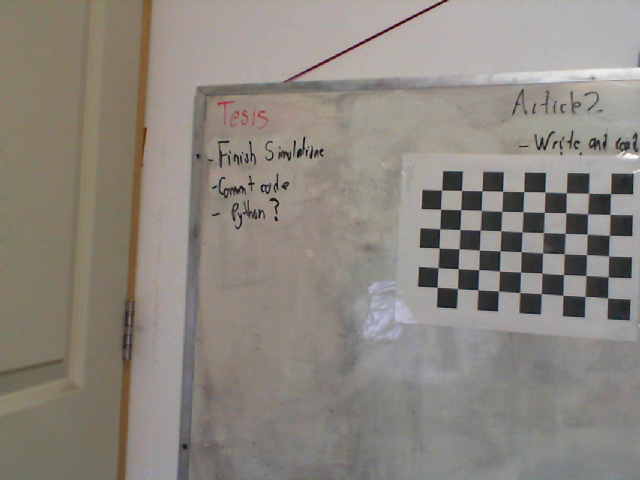 Tesis
- Finish Simulatione
- Comment code
- Python?
Article 2
- Write and